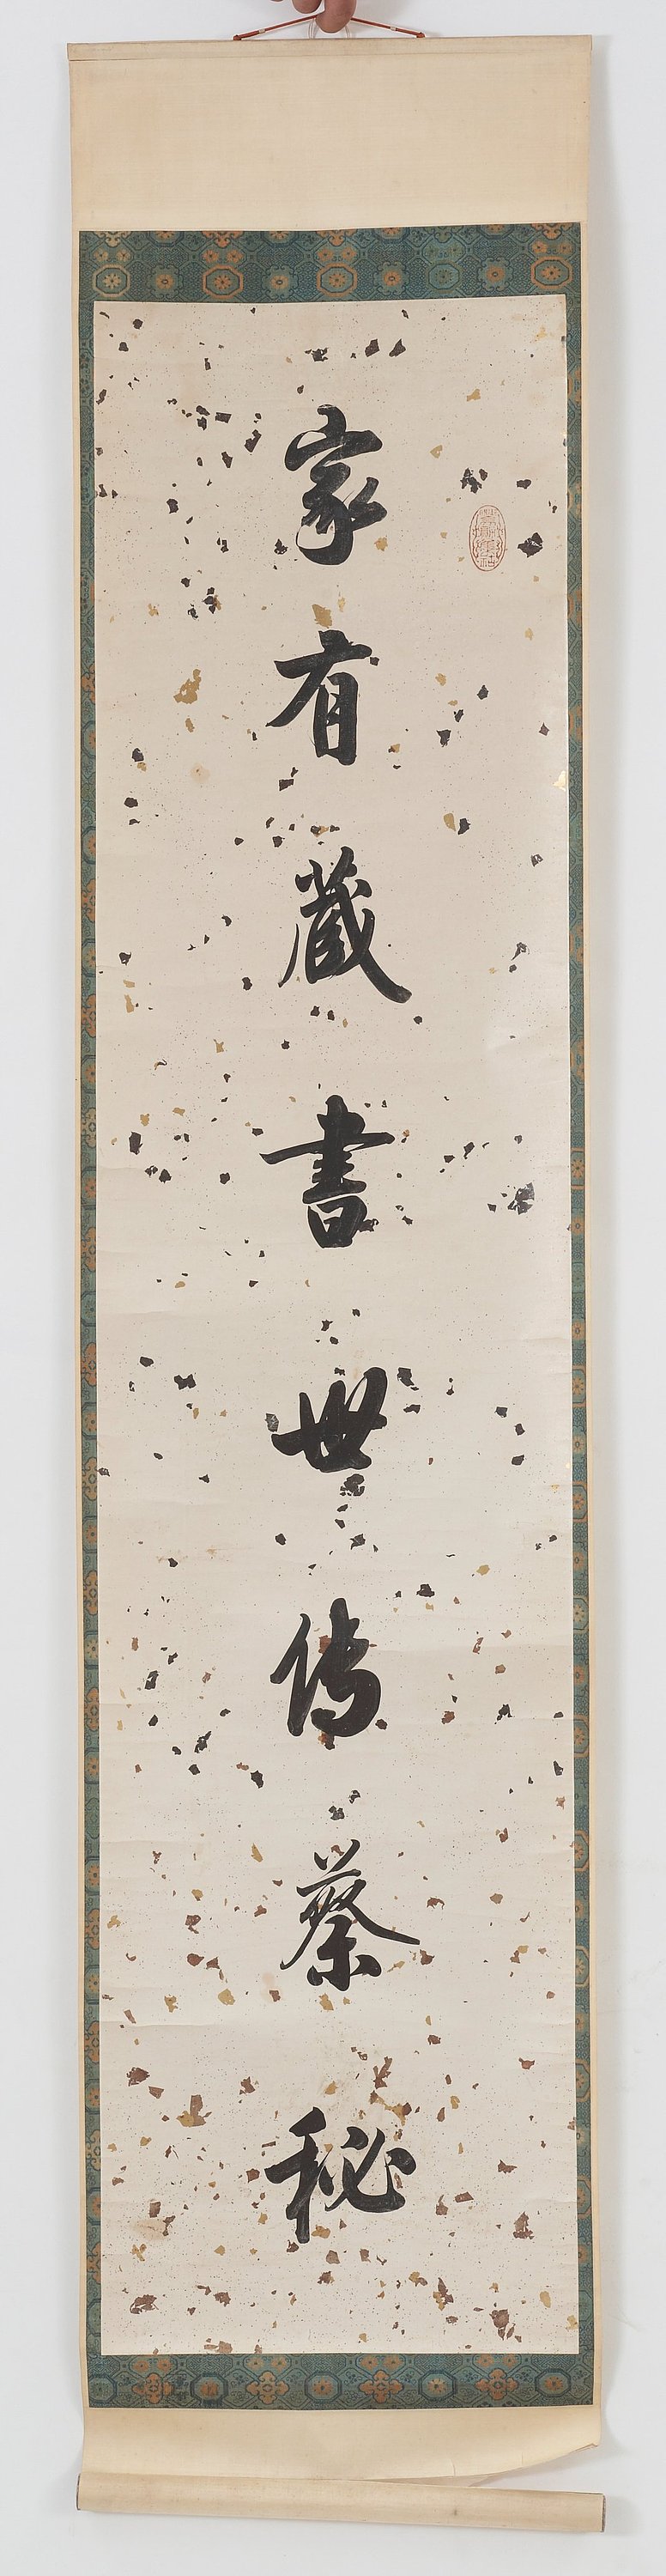 家有藏書世传蔡秘